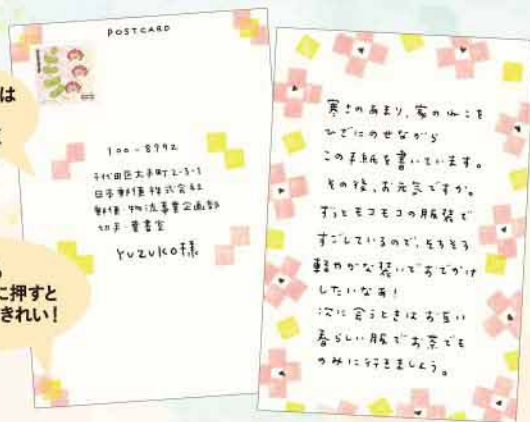 は
に押すと
きれい!
POSTCARD
100-8792
千代田区大手町2-3-1
日本郵便株式会社
郵便・物流事業企画部
切手・葉書室
YUZUKO様
寒さのあまり、家のねこを
ひざにのせながら
この手紙を書いています。
その後、お元気ですか。
ずっとモコモコの服装で
すごしているので、そろそろ
軽やかな装いでおでかけ
したいなあ!
次に会うときはお互い
春らしい服でお茶でも
のみに行きましょう。